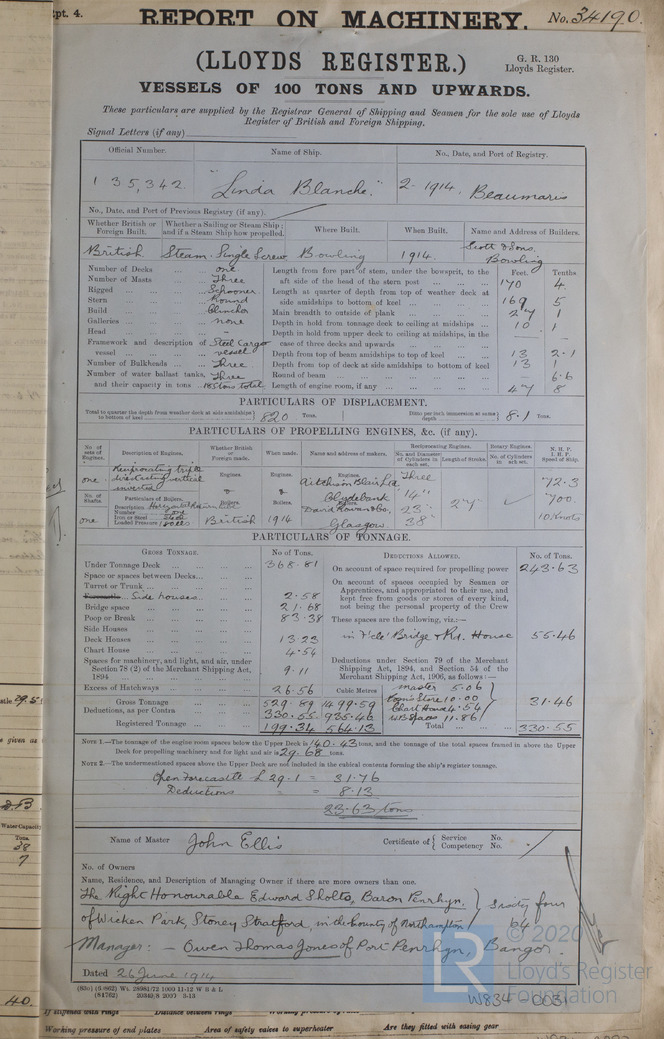 Rpt. 4. REPORT ON MACHINERY. No. 34190.
(LLOYDS REGISTER.)
G. R. 130
Lloyds Register.
VESSELS OF 100 TONS AND UPWARDS.
These particulars are supplied by the Registrar General of Shipping and Seamen for the sole use of Lloyds
Register of British and Foreign Shipping.
Signal Letters (if any)
Official Number. Name of Ship. No., Date, and Port of Registry.
135,342. "Linda Blanche." 2. 1914. Beaumaris
No., Date, and Port of Previous Registry (if any).
Whether British or Foreign Built. Whether a Sailing or Steam Ship; and if a Steam Ship how propelled. Where Built. When Built. Name and Address of Builders.
British Steam. Single Screw Bowling 1914. Scott & Sons. Bowling
Number of Decks one Length from fore part of stem, under the bowsprit, to the Feet. Tenths
Number of Masts Three aft side of the head of the stern post 170 4.
Rigged Schooner Length at quarter of depth from top of weather deck at
Stern Round side amidships to bottom of keel 169 5
Build Clincher Main breadth to outside of plank 27 1
Galleries none Depth in hold from tonnage deck to ceiling at midships 10 1
Head Depth in hold from upper deck to ceiling at midships, in the
Framework and description of Steel Cargo case of three decks and upwards
vessel vessel Depth from top of beam amidships to top of keel 13 2.1
Number of Bulkheads Three Depth from top of deck at side amidships to bottom of keel 13 1
Number of water ballast tanks, Three Round of beam 6.6
and their capacity in tons 185 tons total Length of engine room, if any 47 8
PARTICULARS OF DISPLACEMENT.
Total to quarter the depth from weather deck at side amidships to bottom of keel 820 Tons. Ditto per inch immersion at same depth 8.1 Tons.
PARTICULARS OF PROPELLING ENGINES, &c. (if any).
No. of sets of Engines. Description of Engines. Whether British or Foreign made. When made. Name and address of makers. Reciprocating Engines. Rotary Engines. N.H.P. I.H.P. Speed of Ship.
No. and Diameter of Cylinders in each set. Length of Stroke. No. of Cylinders in each set.
one Reciprocating triple direct acting vertical inverted Engines. Engines. Engines. Aitchison Blair Ltd Three 72.3
No. of Shafts. Particulars of Boilers. Boilers. Boilers. Clydebank 14" 27" 700.
Description Number one David Rowan & Co. 23" 10 Knots
Iron or Steel Steel
one Loaded Pressure British 1914 Glasgow. 38"
PARTICULARS OF TONNAGE.
GROSS TONNAGE. No of Tons. DEDUCTIONS ALLOWED. No. of Tons.
Under Tonnage Deck 368.81 On account of space required for propelling power 243.63
Space or spaces between Decks On account of spaces occupied by Seamen or
Turret or Trunk Apprentices, and appropriated to their use, and
Side houses 2.58 kept free from goods or stores of every kind,
Bridge space 21.68 not being the personal property of the Crew
Poop or Break 83.38 These spaces are the following, viz.:—
Side Houses in F'cle Bridge & Rd. House 55.46
Deck Houses 13.23
Chart House 4.54
Spaces for machinery, and light, and air, under Deductions under Section 79 of the Merchant
Section 78 (2) of the Merchant Shipping Act, 1894 9.11 Shipping Act, 1894, and Section 54 of the Merchant Shipping Act, 1906, as follows:—
Excess of Hatchways 26.56 Cubic Metres Master 5.06
Gross Tonnage 529.89 1499.59 Bosn's Store 10.00 31.46
Deductions, as per Contra 330.55 935.46 Chart House 4.54
W B Spaces 11.86
Registered Tonnage 199.34 564.13 Total 330.55
NOTE 1.—The tonnage of the engine room spaces below the Upper Deck is 140.43 tons, and the tonnage of the total spaces framed in above the Upper
Deck for propelling machinery and for light and air is 29.68 tons.
NOTE 2.—The undermentioned spaces above the Upper Deck are not included in the cubical contents forming the ship's register tonnage.
Open Forecastle 29.1 = 31.76
Deductions = 8.13
23.63 tons
Name of Master John Ellis Certificate of Service No. Competency No.
No. of Owners
Name, Residence, and Description of Managing Owner if there are more owners than one.
The Right Honourable Edward Sholto, Baron Penrhyn. Sixty four
of Wicken Park, Stoney Stratford, in the County of Northampton 64
Manager: — Owen Thomas Jones of Port Penrhyn, Bangor.
Dated 26 June 1914
(83o) (6.602) Wt. 28981/72 1000 11-12 W B & L
(84762) 20349/8 2007 3-13
© 2020
Lloyd's Register
Foundation
LR
W834-0031
If stiffened with rings Distance between rings
Working pressure of end plates Area of safety valves to superheater Are they fitted with easing gear
Water Capacity
Tons.
38
7
40.